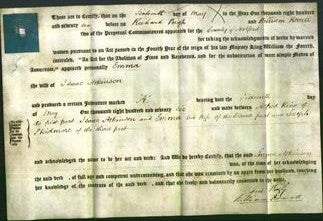 These are to Certify, that on the Sixteenth day of May in the Year One thousand eight hundred
and seventy one before us Richard and William Powell
two of the Perpetual Commissioners appointed for the County of
for taking the acknowledgments of deeds by married
women pursuant to an Act passed in the Fourth Year of the reign of his late Majesty King William the Fourth,
intituled, "An Act for the Abolition of Fines and Recoveries, and for the substitution of more simple Modes of
Assurance," appeared personally Emma
the wife of Isaac Atkinson
and produced a certain Indenture marked "A" bearing date the Sixteenth day
of May One thousand eight hundred and seventy one and made between Alfred King of
the first part Isaac Atkinson and Emma his wife of the second part and
Skidmore of the third part
and acknowledged the same to be her act and deed; And We do hereby Certify, that the said Emma Atkinson
was, at the time of her acknowledging
the said deed, of full age and competent understanding, and that she was examined by us apart from her husband, touching
her knowledge of the contents of the said deed, and that she freely and voluntarily consented to the same.
William Powell